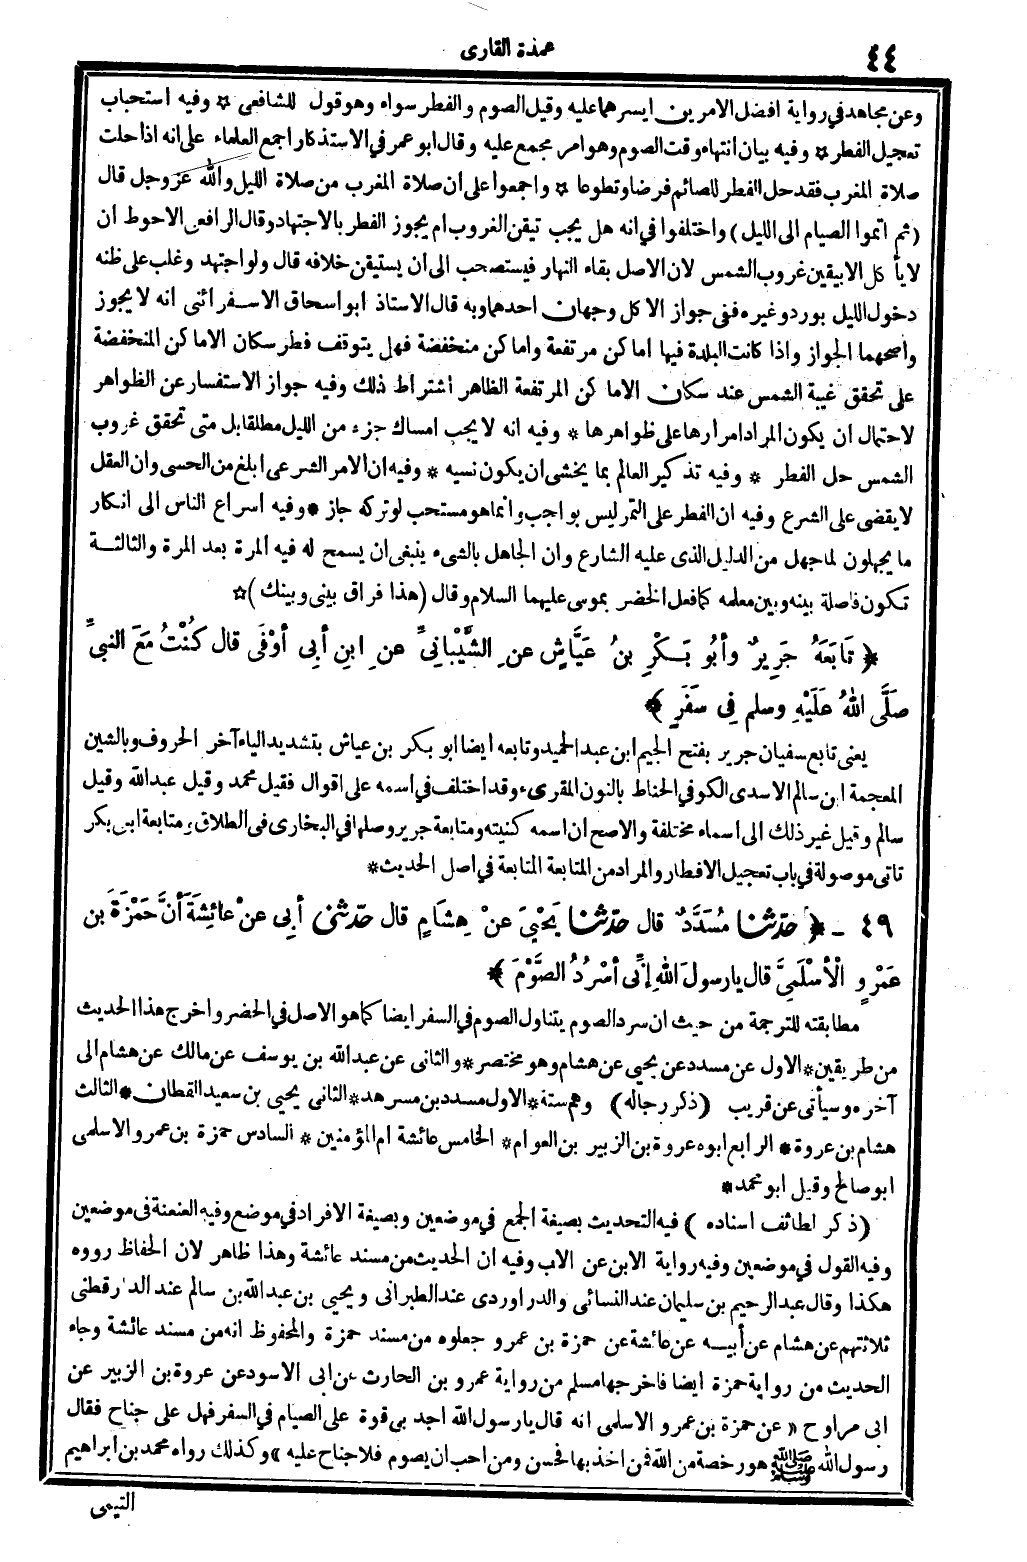 ٤٤
عمدة القارى
وعن مجاهد في رواية افضل الامرين ايسرهما عليه وقيل الصوم والفطر سواء وهو قول للشافعى ☆ وفيه استحباب
تعجيل الفطر ☆ وفيه بيان انتهاء وقت الصوم وهو امر مجمع عليه وقال ابو عمر في الاستذكار اجمع العلماء على انه اذا حلت
صلاة المغرب فقد حل الفطر للصائم فرضا وتطوعا ☆ واجمعوا على ان صلاة المغرب من صلاة الليل والله عز وجل قال
(ثم اتموا الصيام الى الليل) واختلفوا في انه هل يجب تيقن الغروب ام يجوز الفطر بالاجتهاد وقال الرافعى الاحوط ان
لا يأكل الا بيقين غروب الشمس لان الاصل بقاء النهار فيستصحب الى ان يستيقن خلافه قال ولو اجتهد وغلب على ظنه
دخول الليل بورد وغيره ففى جواز الاكل وجهان احدهما وبه قال الاستاذ ابو اسحاق الاسفرائنى انه لا يجوز
وأصحهما الجواز واذا كانت البلدة فيها اماكن مرتفعة واماكن منخفضة فهل يتوقف فطر سكان الاماكن المنخفضة
على تحقق غيبة الشمس عند سكان الاماكن المرتفعة الظاهر اشتراط ذلك وفيه جواز الاستفسار عن الظواهر
لاحتمال ان يكون المراد امرارها على ظواهرها * وفيه انه لا يجب امساك جزء من الليل مطلقا بل متى تحقق غروب
الشمس حل الفطر * وفيه تذكير العالم بما يخشى ان يكون نسيه * وفيه ان الامر الشرعى ابلغ من الحسى وان العقل
لا يقضى على الشرع وفيه ان الفطر على التمر ليس بواجب وانما هو مستحب لو تركه جاز * وفيه اسراع الناس الى انكار
ما يجهلون لما جهل من الدليل الذى عليه الشارع وان الجاهل بالشىء ينبغى ان يسمح له فيه المرة بعد المرة والثالثة
تكون فاصلة بينه وبين معلمه كما فعل الخضر بموسى عليهما السلام وقال (هذا فراق بينى وبينك) ☆
﴿ تَابَعَهُ جَرِيرٌ وأبُو بَكْرِ بنُ عَيَّاشٍ عنِ الشَّيْبَانِيِّ عنِ ابنِ أبِى أوْفَى قال كُنْتُ مَعَ النبىِّ
صَلَّى اللهُ عَلَيْهِ وسلم فِى سَفَرٍ ﴾
يعنى تابع سفيان جرير بفتح الجيم ابن عبد الحميد وتابعه ايضا ابو بكر بن عياش بتشديد الياء آخر الحروف وبالشين
المعجمة ابن سالم الاسدى الكوفي الحناط بالنون المقرىء وقد اختلف في اسمه على اقوال فقيل محمد وقيل عبد الله وقيل
سالم وقيل غير ذلك الى اسماء مختلفة والاصح ان اسمه كنيته ومتابعة جرير وصلها في البخارى فى الطلاق ومتابعة ابى بكر
تاتى موصولة في باب تعجيل الافطار والمراد من المتابعة المتابعة في اصل الحديث *
٤٩ ـ ﴿ حدّثنا مُسَدَّدٌ قال حدّثنا يَحْيَ عنْ هِشَامٍ قال حدّثنى أبِى عنْ عائِشَةَ أنَّ حَمْزَةَ بن
عَمْرٍو الْأسْلَمِيَّ قال يا رسولَ اللهِ إنِّى أسْرُدُ الصَّوْمَ ﴾
مطابقته للترجمة من حيث ان سرد الصوم يتناول الصوم في السفر ايضا كما هو الاصل في الحضر واخرج هذا الحديث
من طريقين * الاول عن مسدد عن يحيى عن هشام وهو مختصر * والثانى عن عبد الله بن يوسف عن مالك عن هشام الى
آخره وسيأتى عن قريب (ذكر رجاله) وهم ستة * الاول مسدد بن مسرهد * الثانى يحيى بن سعيد القطان * الثالث
هشام بن عروة * الرابع ابوه عروة بن الزبير بن العوام * الخامس عائشة ام المؤمنين * السادس حمزة بن عمرو الاسلمى
ابو صالح وقيل ابو محمد *
(ذكر لطائف اسناده) فيه التحديث بصيغة الجمع في موضعين وبصيغة الافراد في موضع وفيه العنعنة فى موضعين
وفيه القول في موضعين وفيه رواية الابن عن الاب وفيه ان الحديث من مسند عائشة وهذا ظاهر لان الحفاظ رووه
هكذا وقال عبد الرحيم بن سليمان عند النسائى والدراوردى عند الطبرانى ويحيى بن عبد الله بن سالم عند الدارقطنى
ثلاثتهم عن هشام عن أبيه عن عائشة عن حمزة بن عمرو جعلوه من مسند حمزة والمحفوظ انه من مسند عائشة وجاء
الحديث من رواية حمزة ايضا فاخرجها مسلم من رواية عمرو بن الحارث عن ابى الاسود عن عروة بن الزبير عن
ابى مراوح « عن حمزة بن عمرو الاسلمى انه قال يا رسول الله اجد بى قوة على الصيام في السفر فهل على جناح فقال
رسول الله ﷺ هو رخصة من الله فمن اخذ بها فحسن ومن احب ان يصوم فلا جناح عليه » وكذلك رواه محمد بن ابراهيم
التيمى